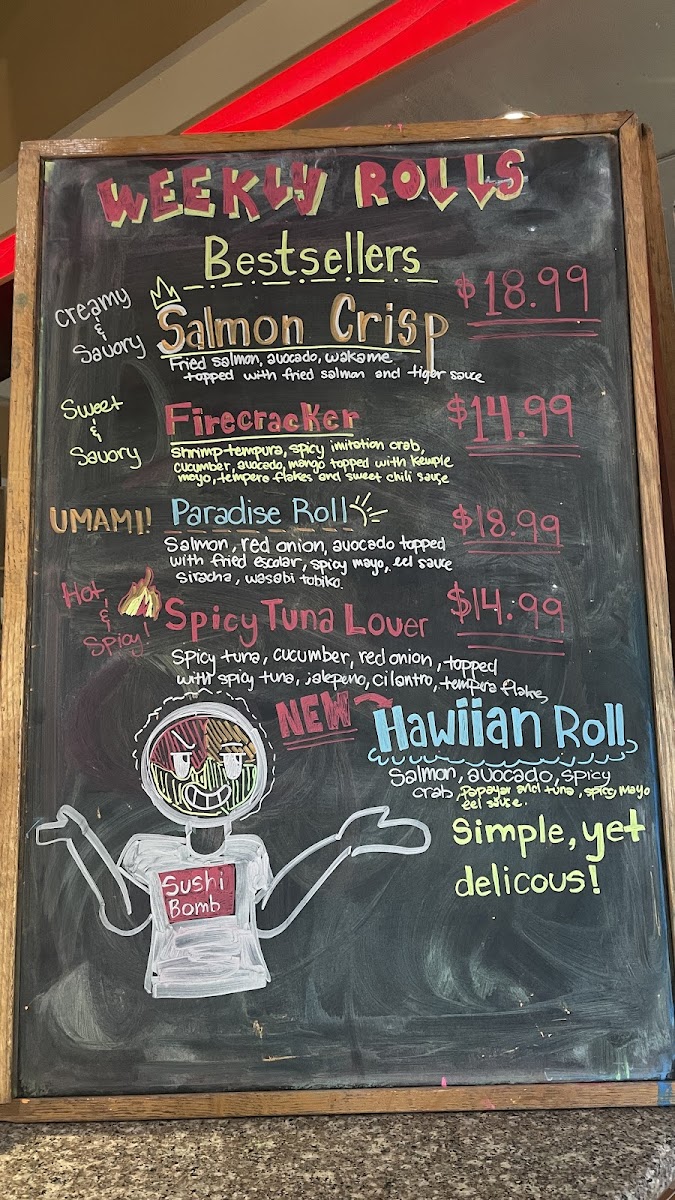 WEEKLY ROLLS
Bestsellers
Creamy
&
Savory
Salmon Crisp
$18.99
Fried salmon, avocado, wakame
topped with fried salmon and tiger sauce
Sweet
&
Savory
Firecracker
$14.99
Shrimp tempura, spicy imitation crab,
cucumber, avocado, mango topped with kewpie
mayo, tempera flakes and sweet chili sauce
UMAMI!
Paradise Roll
$18.99
Salmon, red onion, avocado topped
with fried escolar, spicy mayo, eel sauce
siracha, wasabi tobiko.
Hot
&
Spicy!
Spicy Tuna Lover
$14.99
Spicy tuna, cucumber, red onion, topped
with spicy tuna, jalepeno, cilantro, tempera flakes
NEW
Hawiian Roll
Salmon, avocado, spicy
crab, papaya and tuna, spicy mayo
eel sauce.
Simple, yet
delicous!
Sushi
Bomb